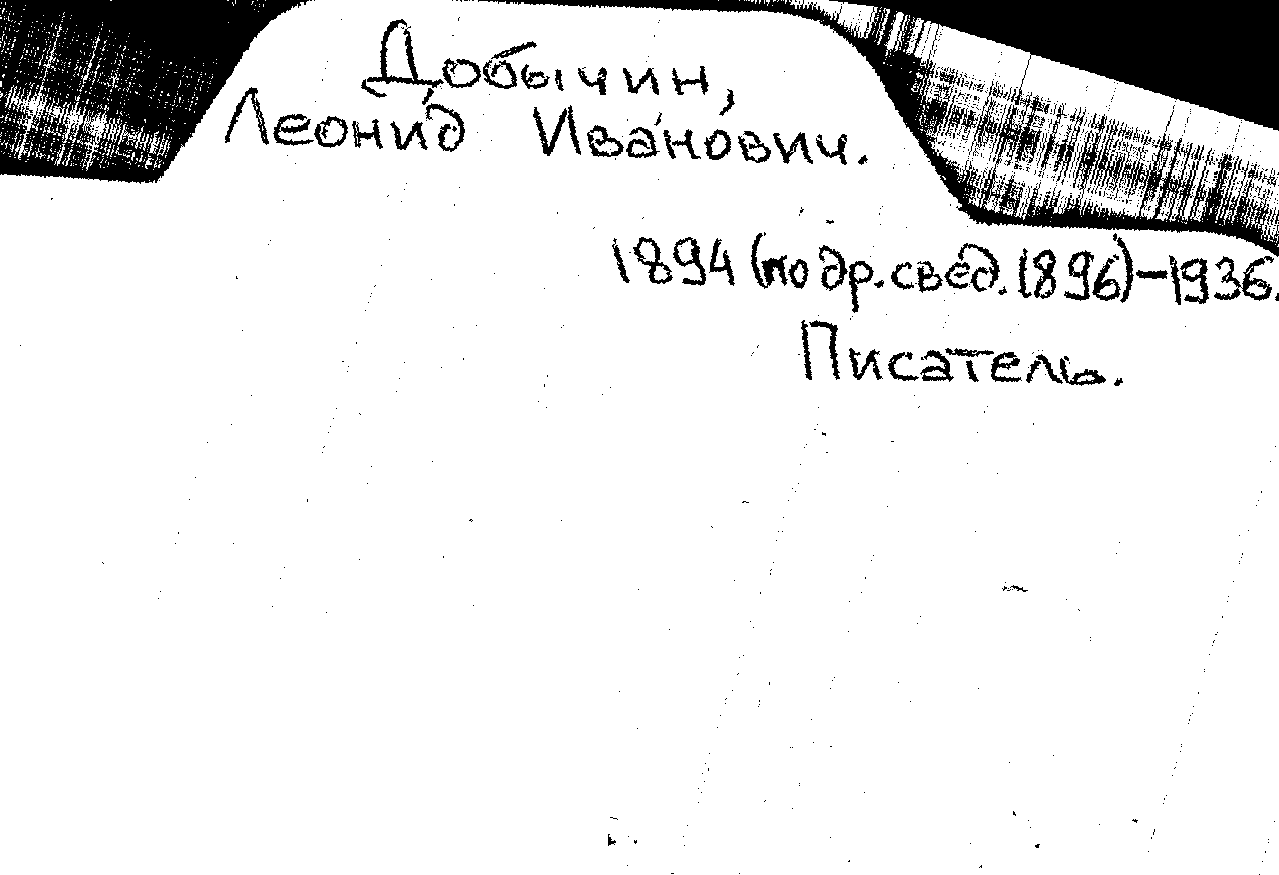 Добычин,
Леонид Иванович.
1894 (по др. свед. 1896) – 1936.
Писатель.